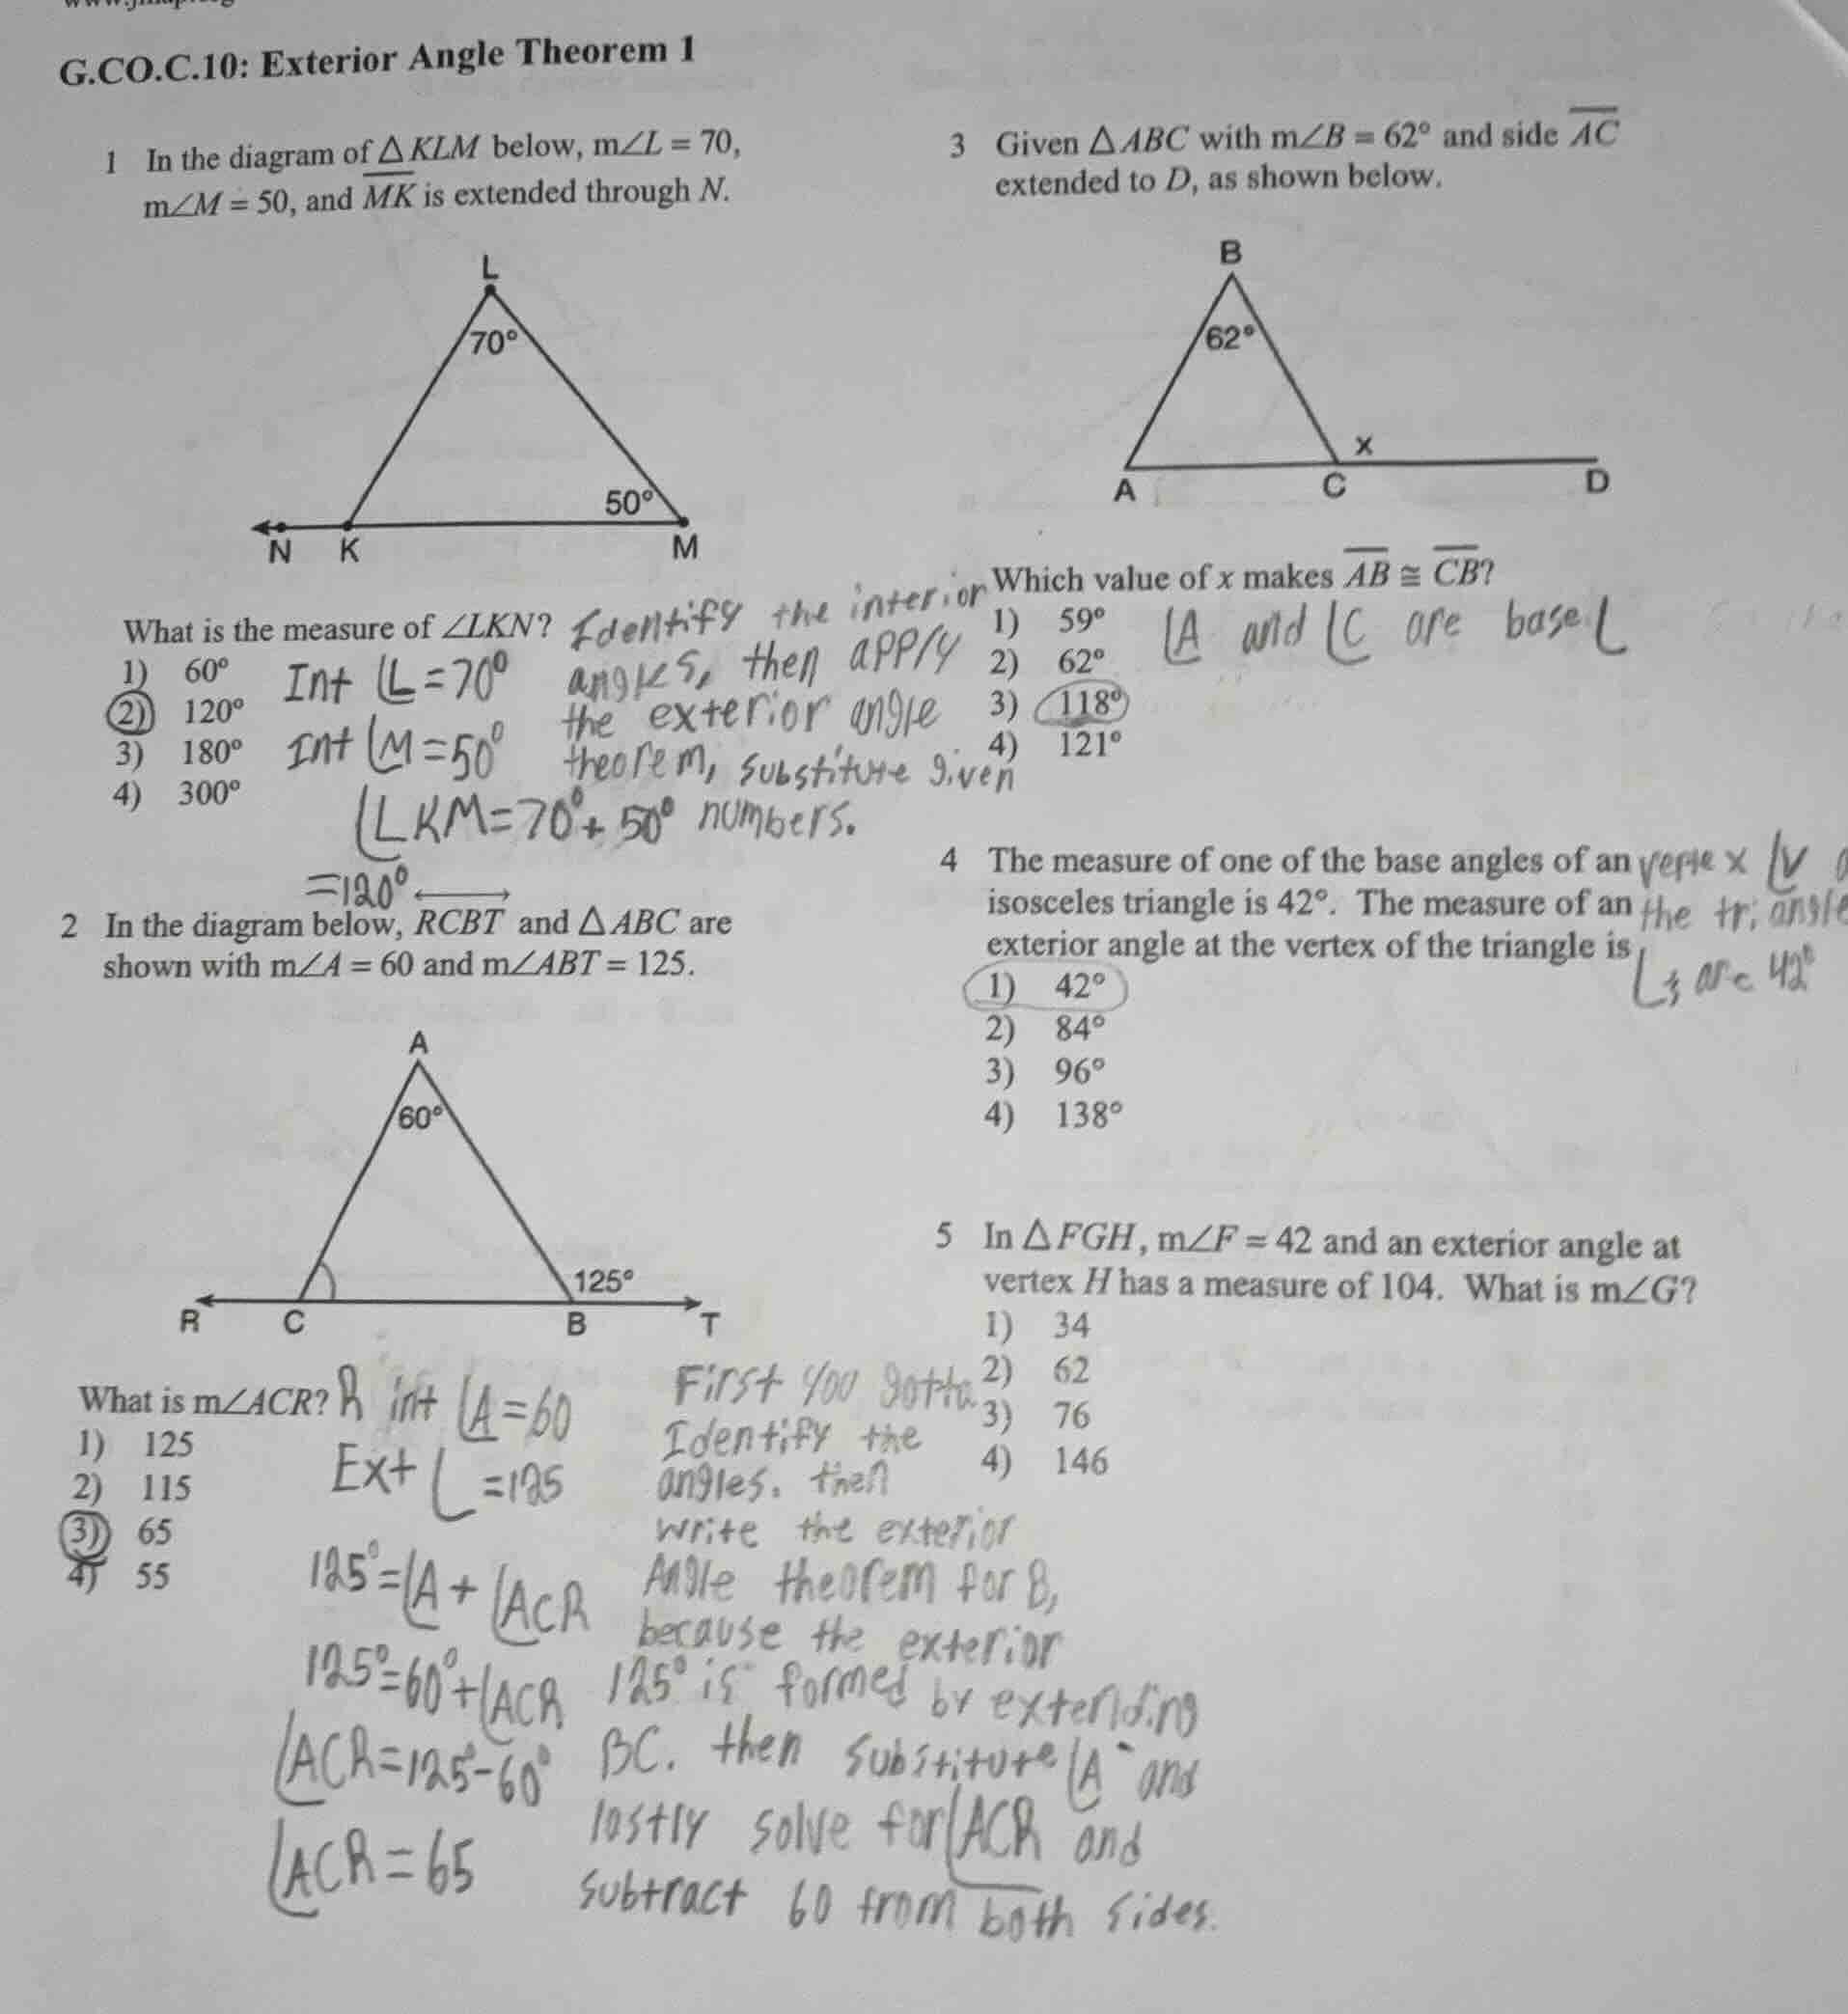 G.CO.C.10: Exterior Angle Theorem 1
1 In the diagram of △KLM below, m∠L = 70,
m∠M = 50, and MK is extended through N.
L
70°
50°
N K M
What is the measure of ∠LKN?
1) 60°
2) 120°
3) 180°
4) 300°
Identify the interior
angles, then apply
the exterior angle
theorem, substiture given
numbers.
Int ∠L=70°
Int ∠M=50°
∠LKM=70°+50°
=120°
2 In the diagram below, RCBT and △ABC are
shown with m∠A = 60 and m∠ABT = 125.
A
60°
125°
R C B T
What is m∠ACR?
1) 125
2) 115
3) 65
4) 55
R int ∠A=60
Ext ∠ =125
125°=∠A+∠ACR
125°=60°+∠ACR
∠ACR=125°-60°
∠ACR=65
First you gotta
Identify the
angles. then
write the exterior
Angle theorem for B,
because the exterior
125° is formed by extending
BC. then substitute ∠A and
lastly solve for ∠ACR and
subtract 60 from both sides.
3 Given △ABC with m∠B = 62° and side AC
extended to D, as shown below.
B
62°
x
A C D
Which value of x makes AB ≅ CB?
1) 59°
2) 62°
3) 118°
4) 121°
∠A and ∠C are base ∠
4 The measure of one of the base angles of an
isosceles triangle is 42°. The measure of an
exterior angle at the vertex of the triangle is
1) 42°
2) 84°
3) 96°
4) 138°
vertex ∠V
the triangle
∠s are 42°
5 In △FGH, m∠F = 42 and an exterior angle at
vertex H has a measure of 104. What is m∠G?
1) 34
2) 62
3) 76
4) 146